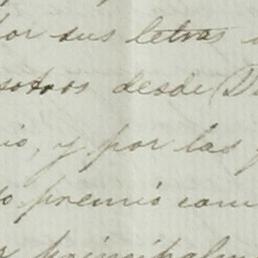 por sus letras
sotros desde
io, y por las
o premio com
principalm